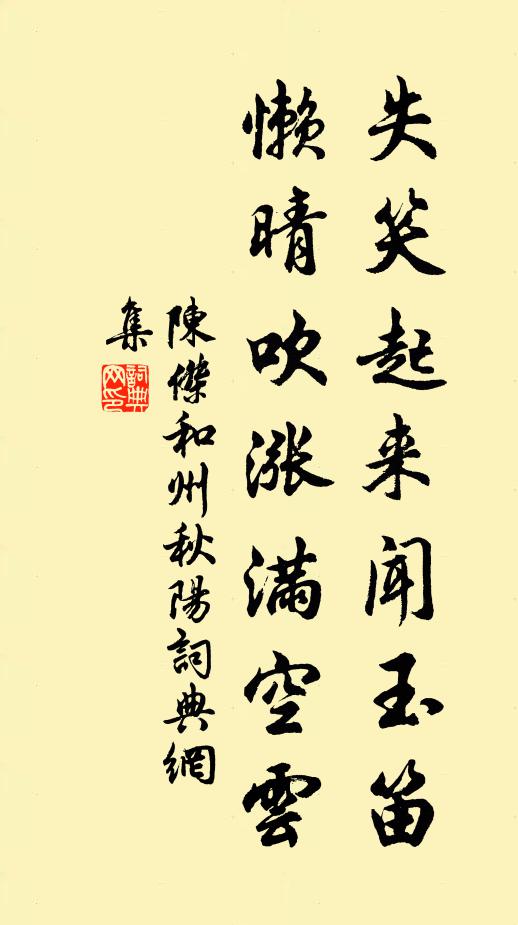 失笑起来闻玉笛
懒晴吹涨满空雲
陳傑和州秋陽詞典網
集
詞典网印